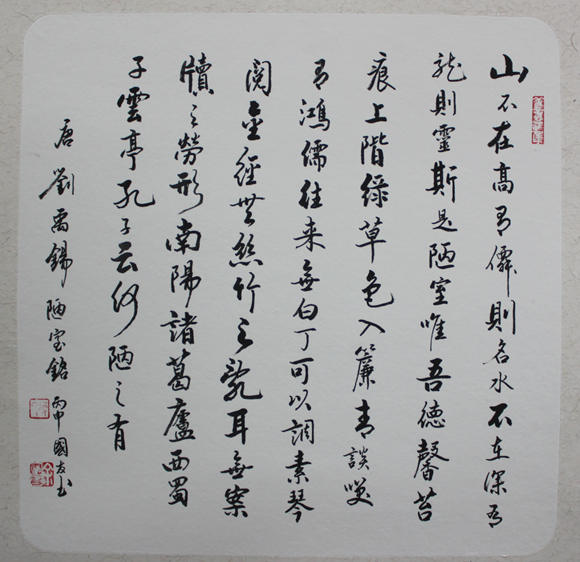 山不在高有僊則名水不在深有
龍則靈斯是陋室唯吾德馨苔
痕上階綠草色入簾青談咲
有鴻儒往来無白丁可以調素琴
閱金經無絲竹之亂耳無案
牘之勞形南陽諸葛廬西蜀
子雲亭孔子云何陋之有
唐劉禹錫陋室銘
丙申國友書